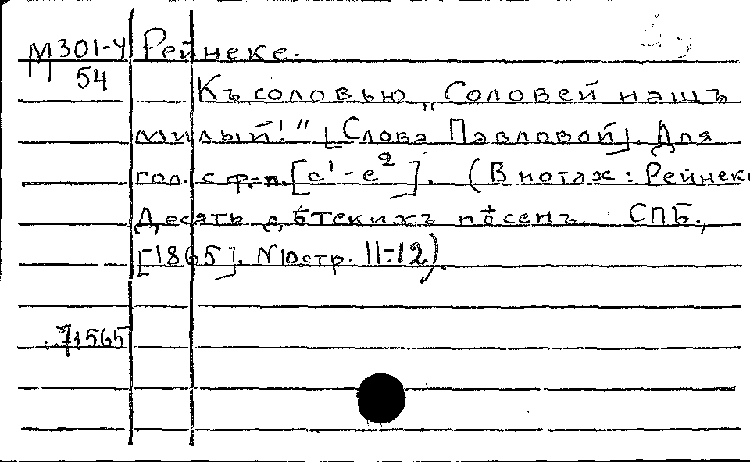 М301-4 Рейнеке.
54
Къ соловью „Соловей нашъ
милый!" [Слова Павловой]. Для
гол. с ф.-п. [c¹-e²]. (В нотах: Рейнек
Десять дѣтскихъ пѣсенъ. СПБ.,
[1865]. N10 стр. 11-12).
71565